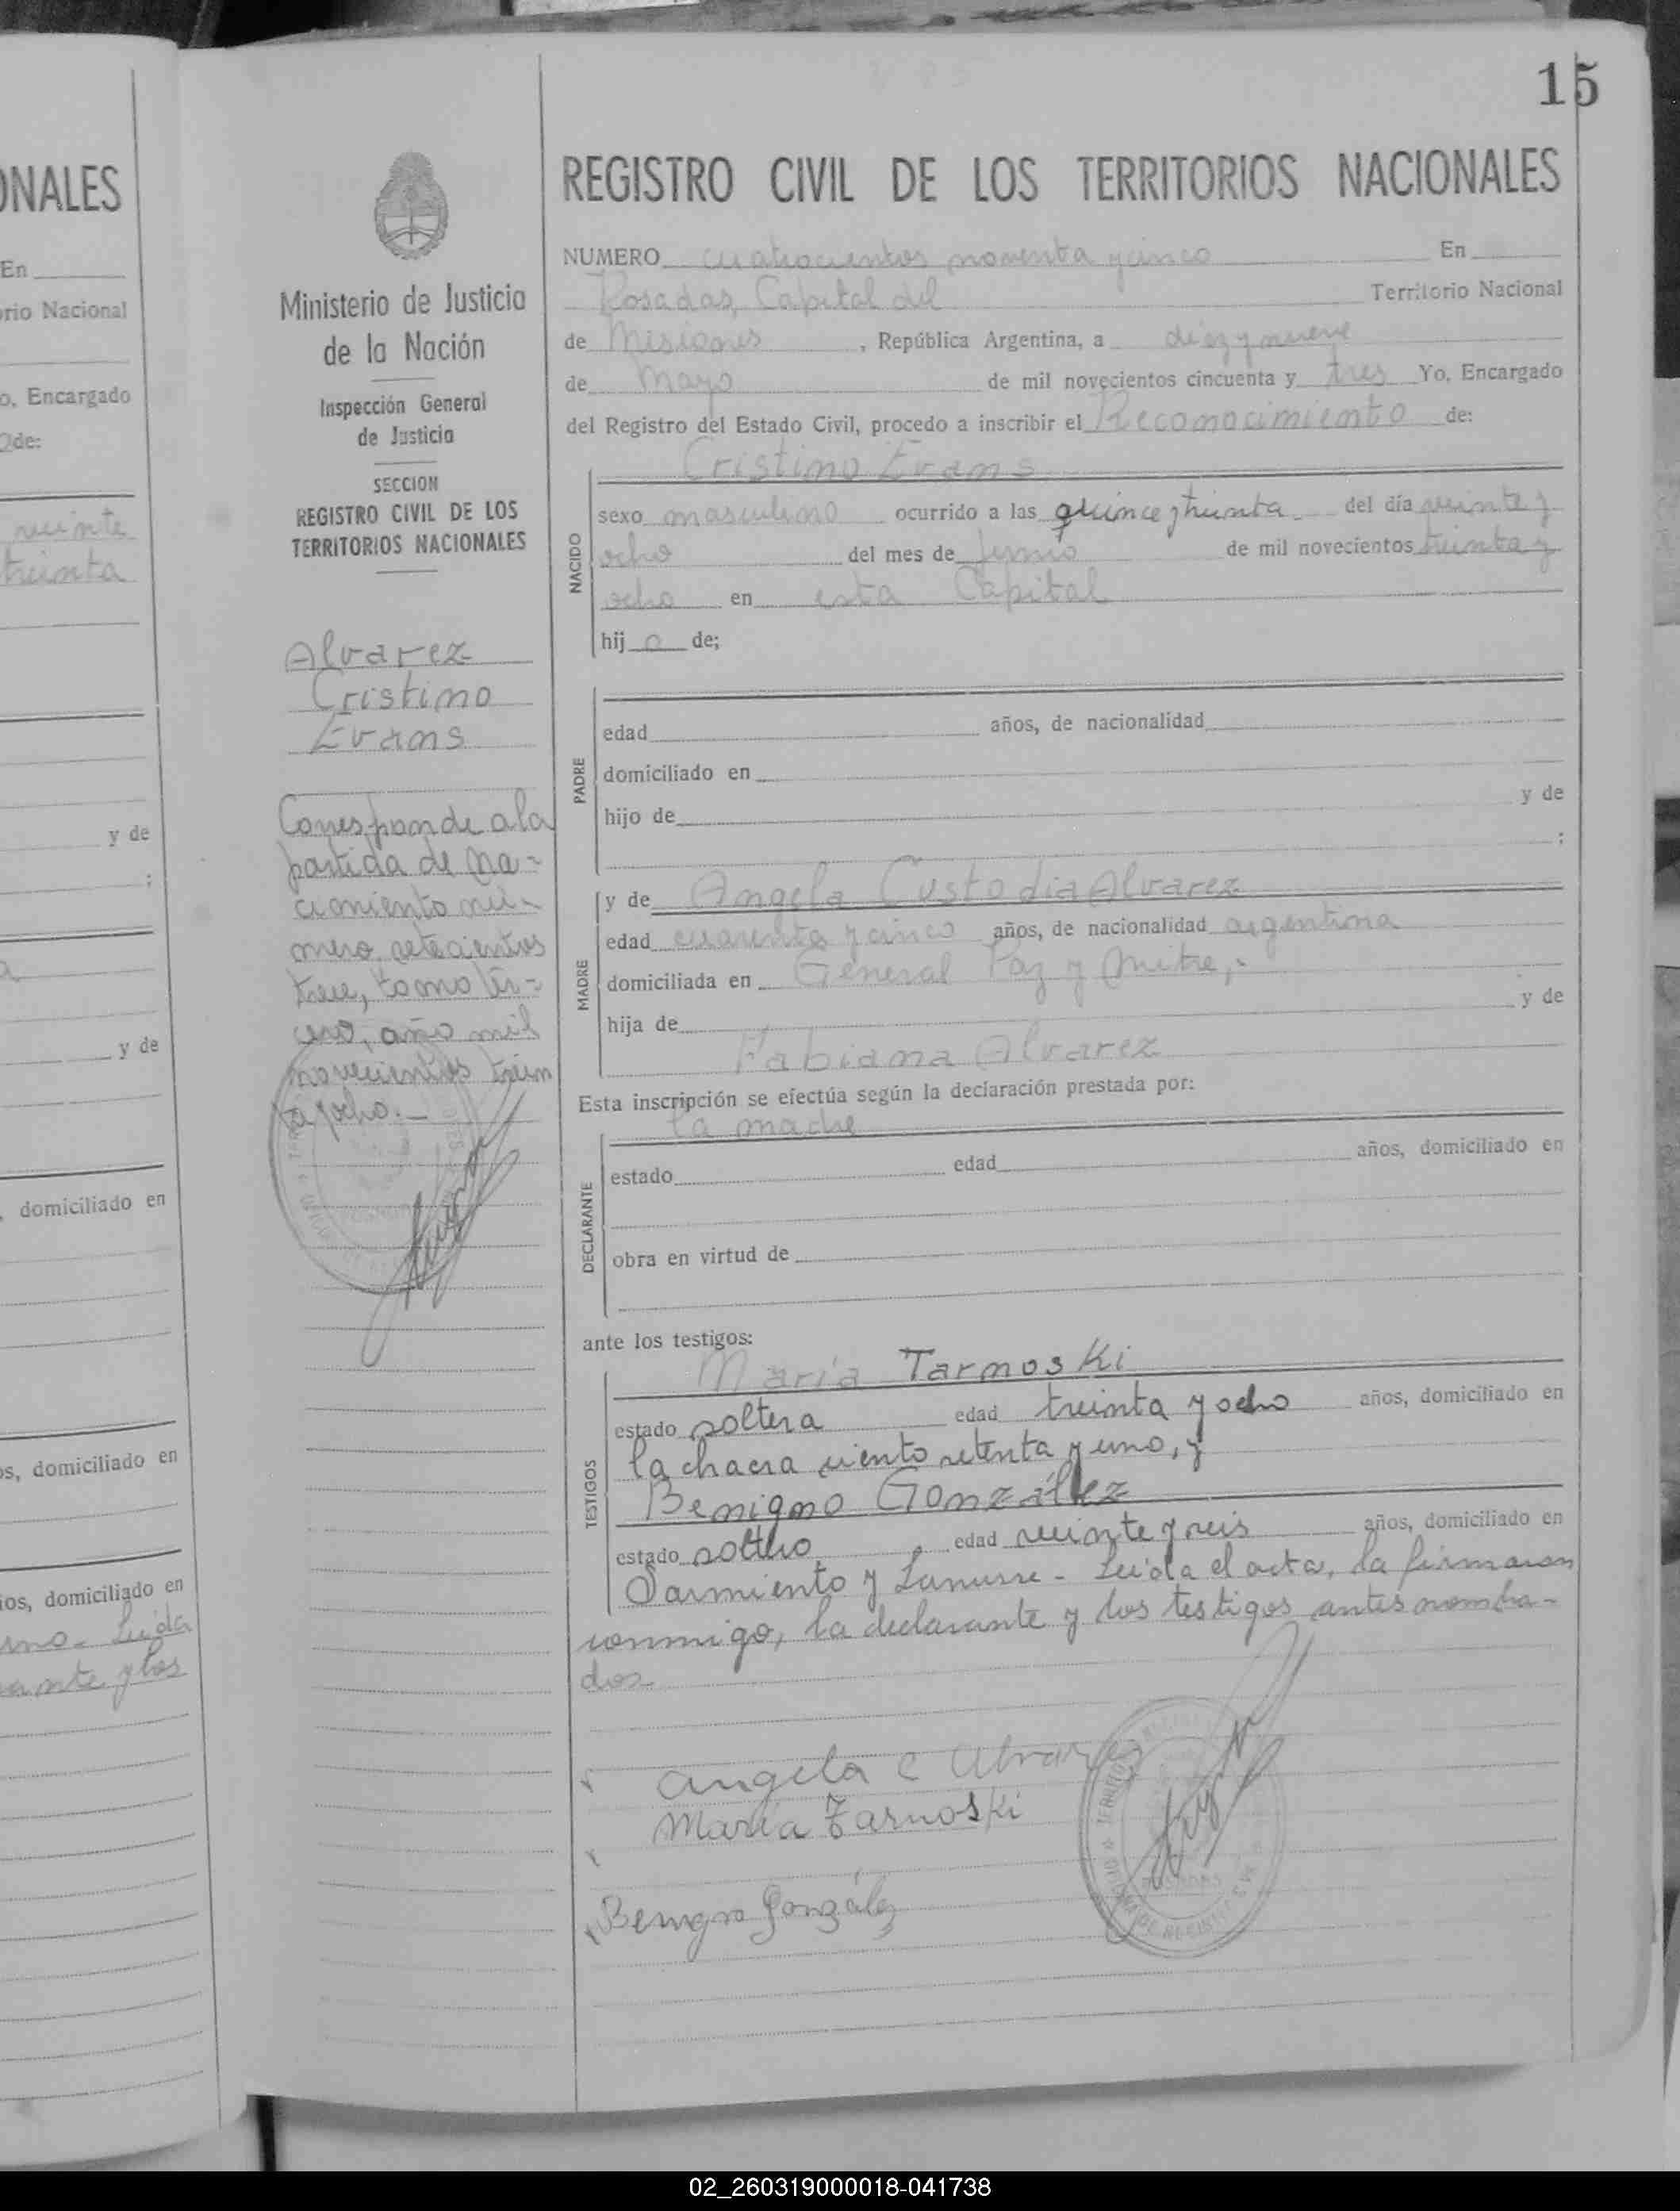 ONALES
En
rio Nacional
o, Encargado
de:
veinte
treinta
y de
;
a
y de
, domiciliado en
os, domiciliado en
ios, domiciliado en
uno. Leída
ante y los
15
Ministerio de Justicia
de la Nación
Inspección General
de Justicia
SECCION
REGISTRO CIVIL DE LOS
TERRITORIOS NACIONALES
Alvarez
Cristino
Evans
Corresponde a la
partida de na-
cimiento nú-
mero setecientos
trece, tomo ter-
cero, año mil
novecientos trein
ta y ocho.-
REGISTRO CIVIL DE LOS TERRITORIOS NACIONALES
NUMERO cuatrocientos noventa y cinco En
Posadas, Capital del Territorio Nacional
de Misiones, República Argentina, a diez y nueve
de Mayo de mil novecientos cincuenta y tres Yo, Encargado
del Registro del Estado Civil, procedo a inscribir el Reconocimiento de:
Cristino Evans
NACIDO
sexo masculino ocurrido a las quince y treinta del día veinte y
ocho del mes de junio de mil novecientos treinta y
ocho en esta Capital
hijo de;
PADRE
edad años, de nacionalidad
domiciliado en
hijo de y de
;
MADRE
y de Angela Custodia Alvarez
edad cuarenta y cinco años, de nacionalidad argentina
domiciliada en General Paz y Mitre,-
hija de y de
Fabiana Alvarez
Esta inscripción se efectúa según la declaración prestada por:
la madre
DECLARANTE
estado edad años, domiciliado en
obra en virtud de
ante los testigos:
María Tarnoski
TESTIGOS
estado soltera edad treinta y ocho años, domiciliado en
la chacra ciento setenta y uno, y
Benigno González
estado soltero edad veinte y seis años, domiciliado en
Sarmiento y Lanusse - Leída el acta, la firmaron
conmigo, la declarante y los testigos antes nombra-
dos.-
Angela C Alvarez
María Tarnoski
Benigno González
02_260319000018-041738